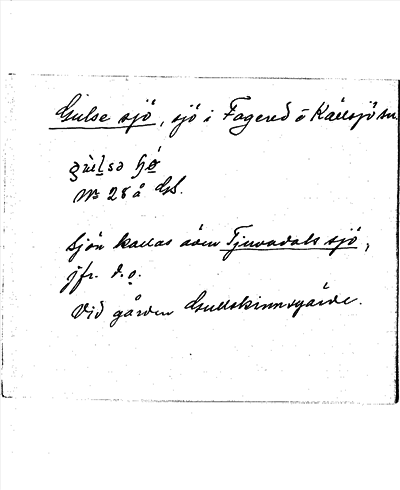 Gulse sjö, sjö i Fagered o Källsjö sn.
No 28 å GS.
Sjön kallas även Tjuvadals sjö,
jfr. d. o.
Vid gården Gullskinnsgärde.